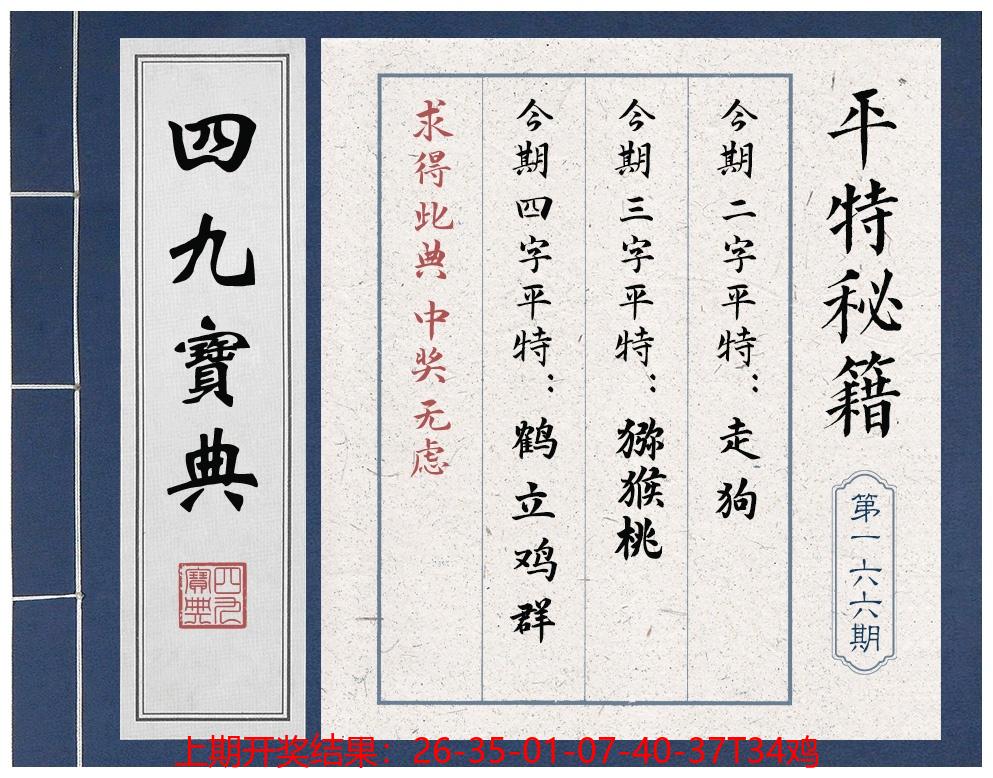 平特秘籍
第一六六期
今期二字平特：走狗
今期三字平特：猕猴桃
今期四字平特：鹤立鸡群
求得此典 中奖无虑
四九寶典
四九寶典
上期开奖结果：26-35-01-07-40-37T34鸡